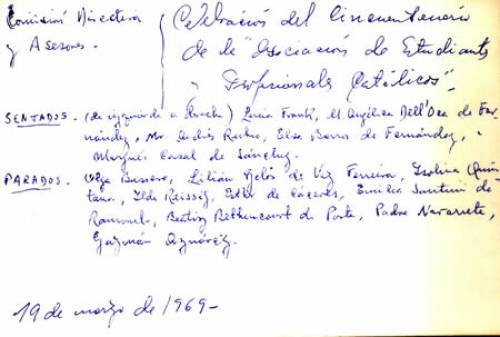 Comisión Directiva
y Asesores.
Celebración del Cincuentenario
de la "Asociación de Estudiantes
y Profesionales Católicos".
SENTADOS. (de izquierda a derecha) Lucía Frank, M. Angélica Dell'Oca de Fer-
nández, Mr. Andrés Rubio, Elsa Barros de Fernández,
Marqués Casal de Sánchez.
PARADOS. Olga Bussero, Lilián Gelós de Vaz Ferreira, Isolina Quin-
tana, Ilda Reissig, Esther de Cáceres, Emilia
Beatriz Bethencourt de Ponte, Padre Navarrete,
Guzmán Aznárez.
19 de marzo de 1969-